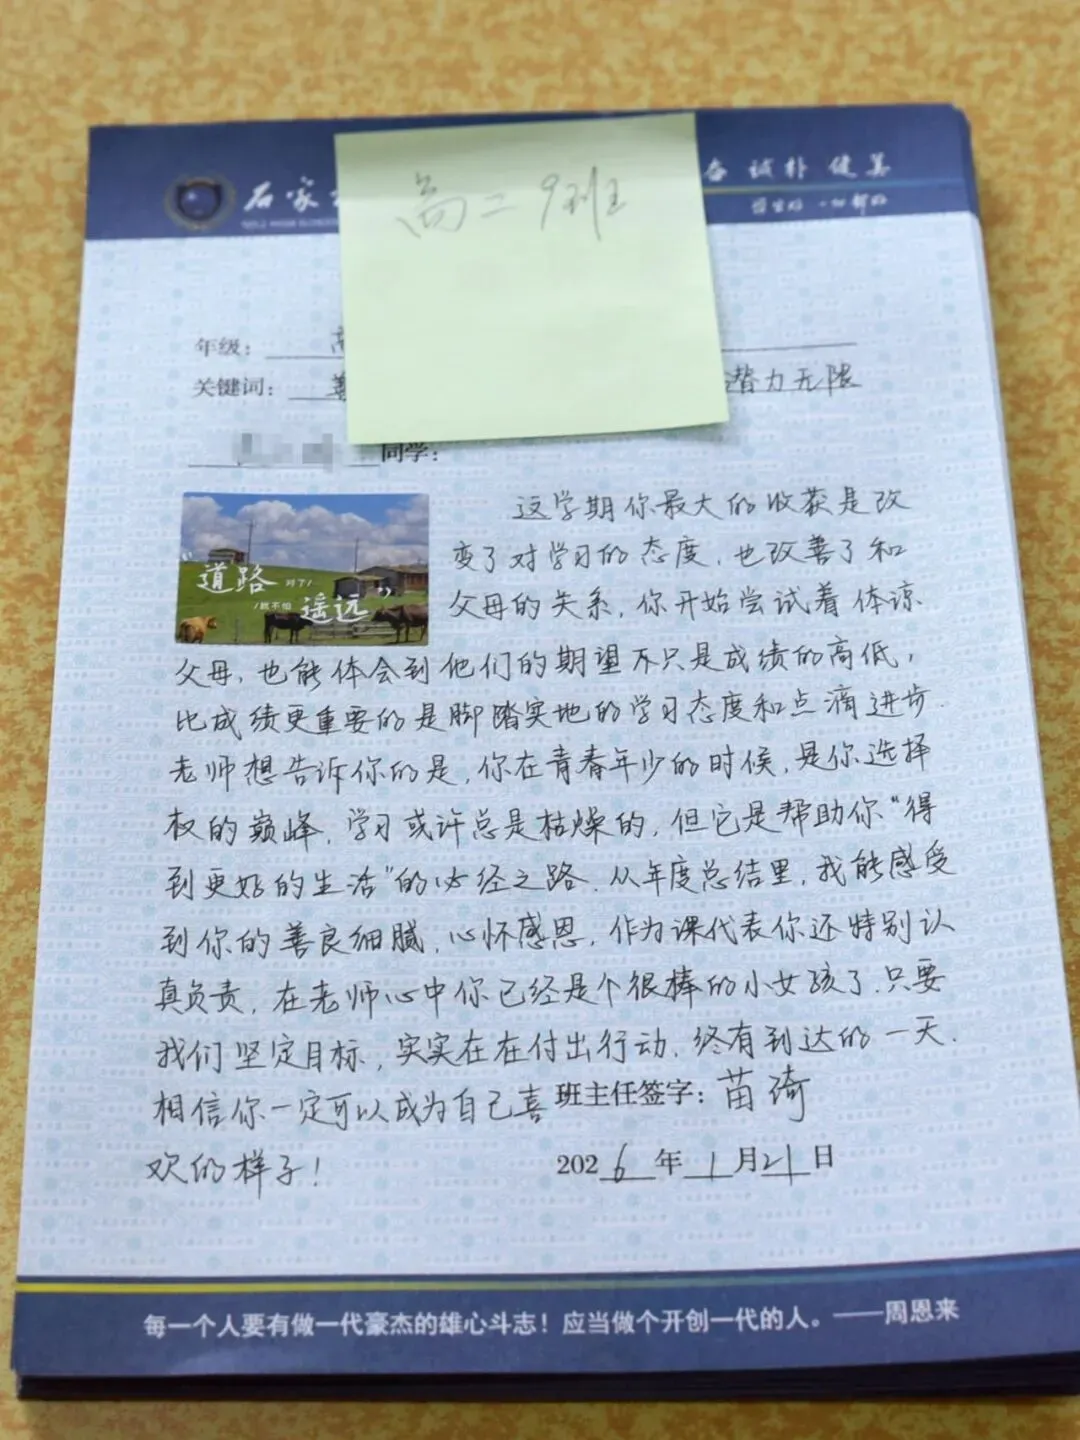 石家
诚朴 健美
高二 9班
年级：
关键词：
潜力无限
同学：
“道路 对了/
/就不怕 遥远”
这学期你最大的收获是改
变了对学习的态度，也改善了和
父母的关系，你开始尝试着体谅
父母，也能体会到他们的期望不只是成绩的高低，
比成绩更重要的是脚踏实地的学习态度和点滴进步.
老师想告诉你的是，你在青春年少的时候，是你选择
权的巅峰，学习或许总是枯燥的，但它是帮助你“得
到更好的生活”的必经之路.从年度总结里，我能感受
到你的善良细腻，心怀感恩，作为课代表你还特别认
真负责，在老师心中你已经是个很棒的小女孩了.只要
我们坚定目标，实实在在付出行动，终有到达的一天.
相信你一定可以成为自己喜
欢的样子！
班主任签字：苗琦
2026年1月21日
每一个人要有做一代豪杰的雄心斗志！应当做个开创一代的人。——周恩来